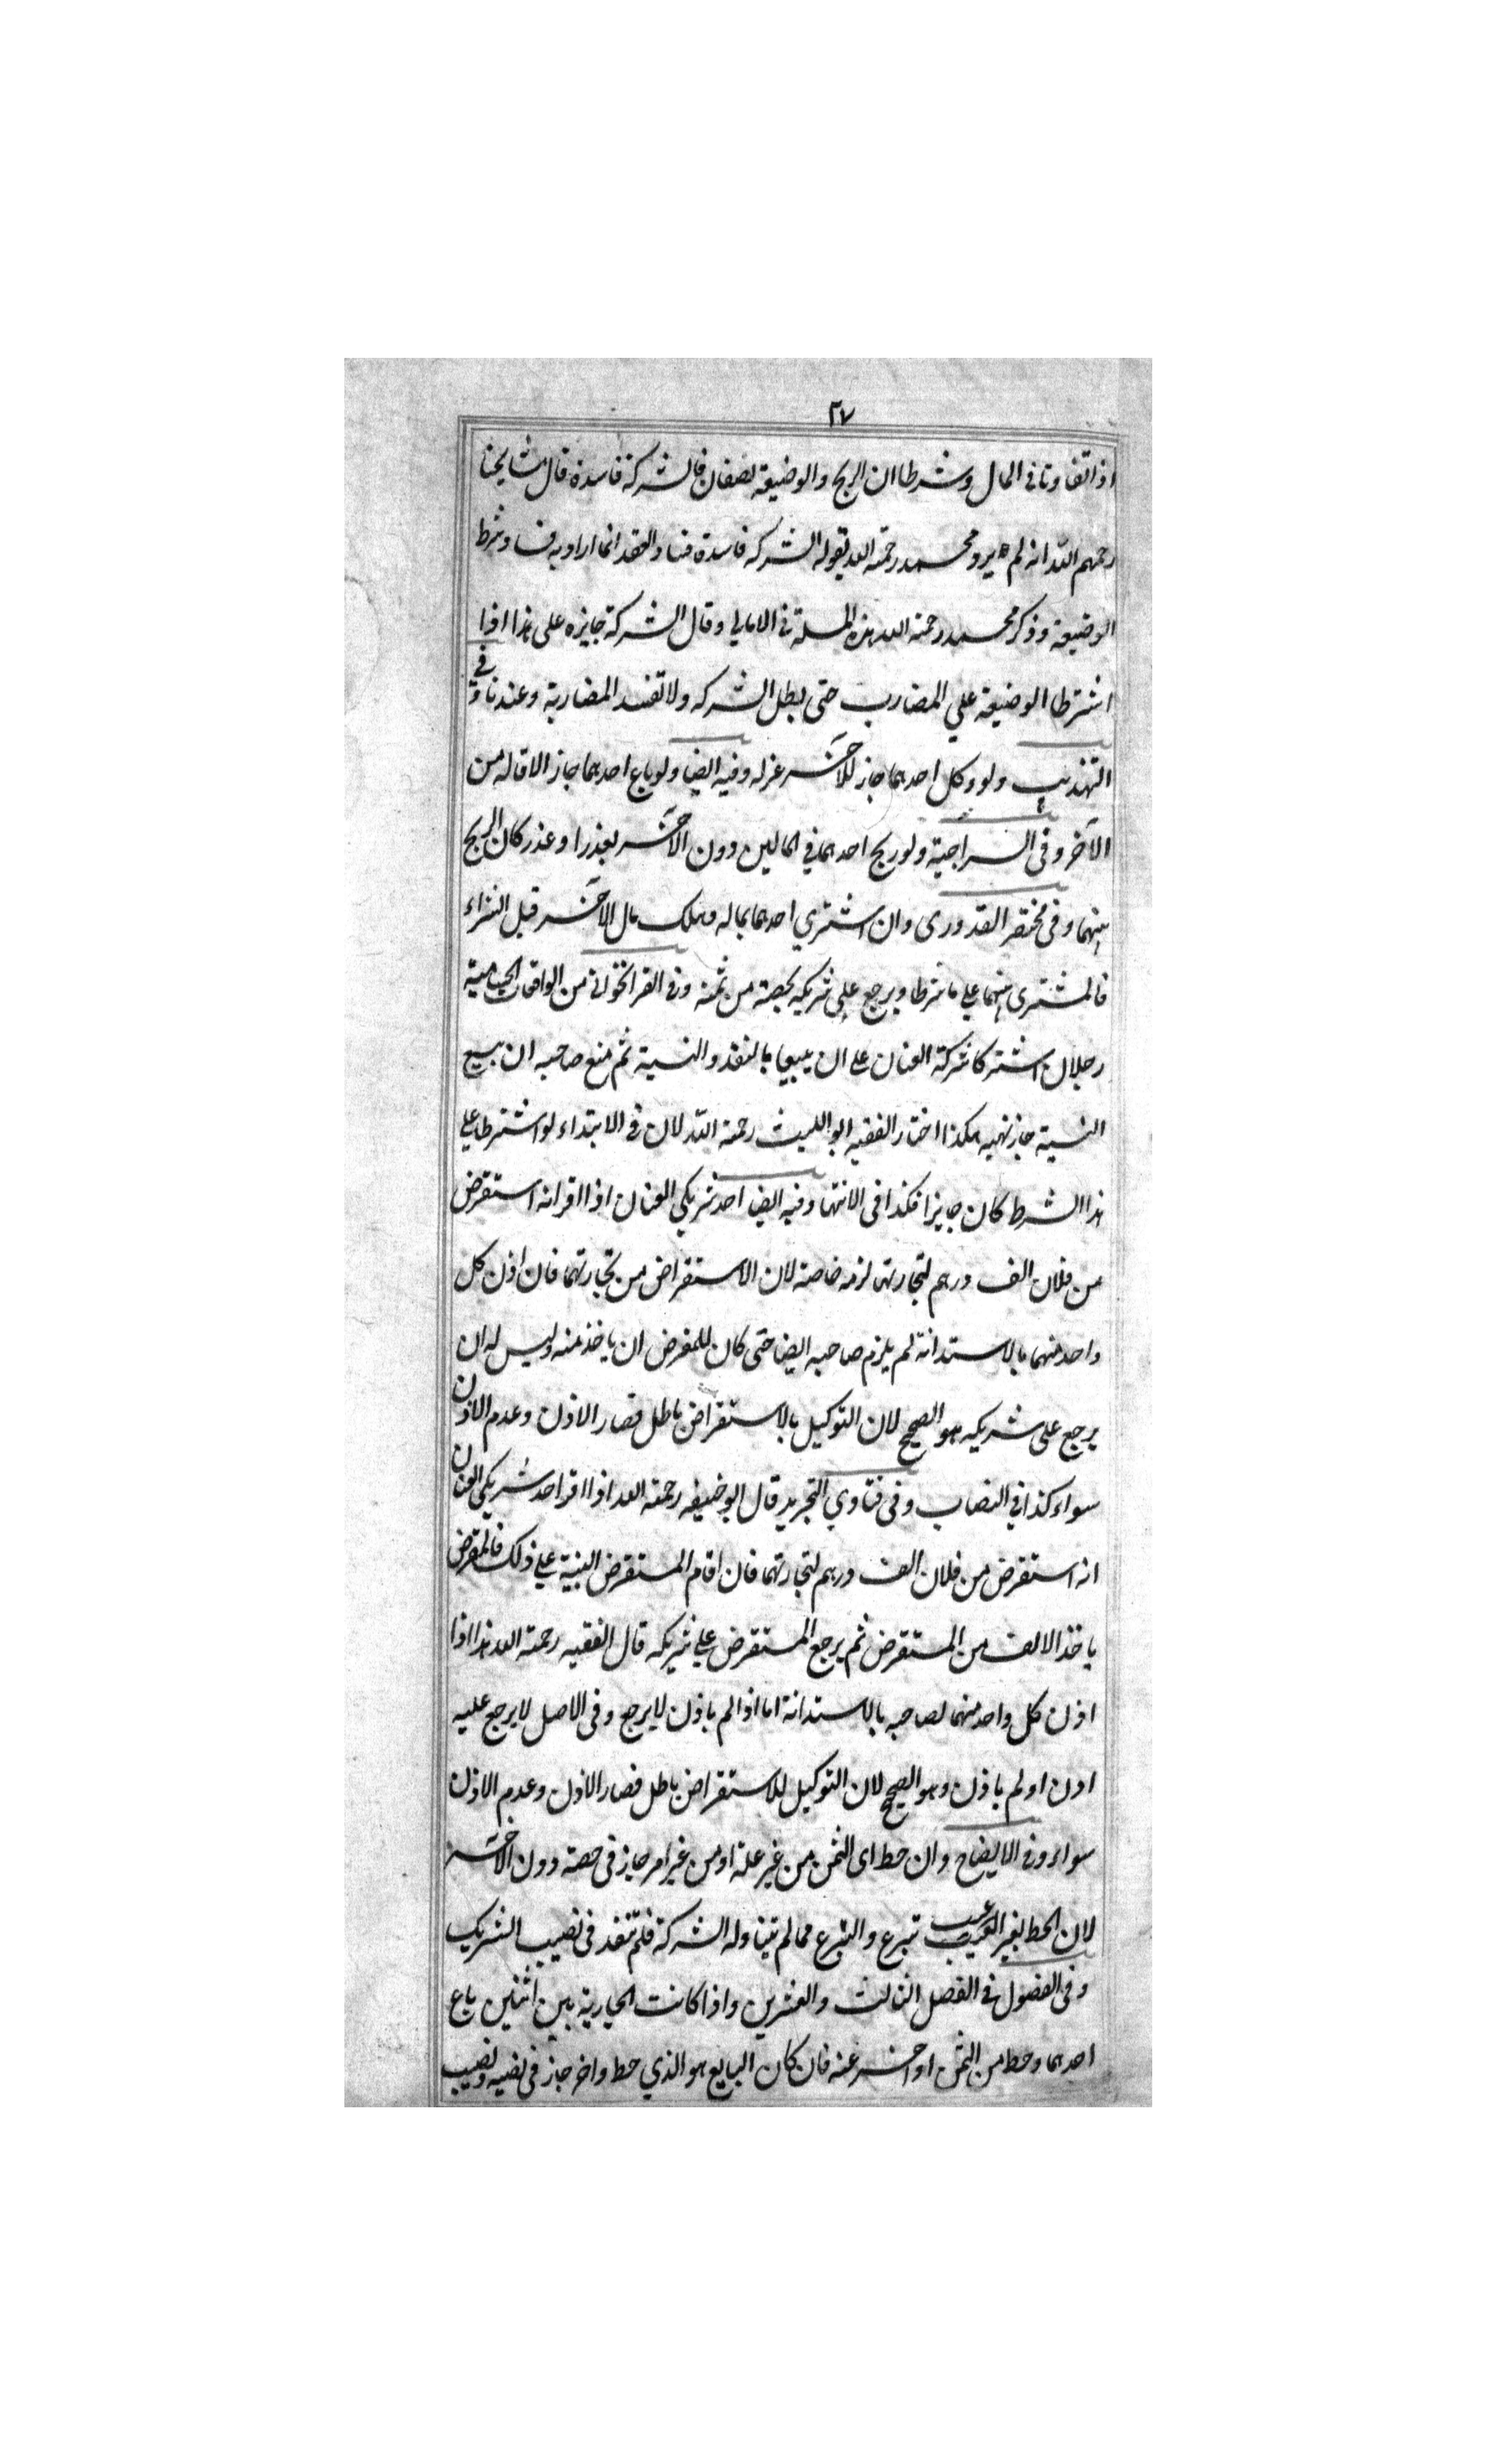 ٢٧
اذا تفاوتا فى المال وشرطا ان الربح والوضيعة نصفان فالشركة فاسدة قال مشايخنا
رحمهم الله انه لم يرد محمد رحمة الله بقوله الشركه فاسدة فساد العقد انما اراد به فساد شرط
الوضيعة وذكر محمد رحمة الله هذه المسلة فى الامالي وقال الشركة جايزه على هذا اذا
اشترطا الوضيعة علي المضارب حتى يبطل الشركه ولا تفسد المضاربة وعندنا وفي
التهذيب ولو وكل احدهما جاز للآخر عزله وفيه ايضا ولو باع احدهما جاز الاقاله من
الآخر وفى السراجية ولو ربح احدهما في المالين دون الآخر بعذر او عذر كان الربح
بينهما وفى مختصر القدورى وان اشتري احدهما بماله وهلك مال الآخر قبل الشراء
فالمشترى بينهما علي ما شرطا ويرجع علي شريكه بحصة من ثمنه وفى الفراتخوانى من الواقعات الحسامية
رجلان اشتركا شركة العنان على ان يبيعا بالنقد والنسية ثم منع صاحبه ان يبيع
النسية جاز نهيه هكذا اختار الفقيه ابو الليث رحمة الله لان فى الابتداء لو اشترطا علي
هذا الشرط كان جايزا فكذا فى الانتها وفيه ايضا احد شريكي العنان اذا اقر انه استقرض
من فلان الف درهم لتجارتهما لزمه خاصة لان الاستقراض من تجارتهما فان اذن كل
واحد منهما بالاستدانة لم يلزم صاحبه ايضا حتى كان للمقرض ان ياخذ منه وليس له ان
يرجع على شريكه هو الصحيح لان التوكيل بالاستقراض باطل فصار الاذن وعدم الاذن
سواء كذا في النصاب وفى فتاوي التجريد قال ابو حنيفه رحمة الله اذا اقر احد شريكي العنان
انه استقرض من فلان الف درهم لتجارتهما فان اقام المستقرض البينة علي ذلك فالمقرض
ياخذ الالف من المستقرض ثم يرجع المستقرض علي شريكه قال الفقيه رحمة الله هذا اذا
اذن كل واحد منهما لصاحبه بالاستدانة اما اذا لم ياذن لا يرجع وفى الاصل لا يرجع عليه
اذن او لم ياذن وهو الصحيح لان التوكيل للاستقراض باطل فصار الاذن وعدم الاذن
سواء وفى الايضاح وان حط اى الثمن من غير علة او من غير امر جاز فى حصة دون الآخر
لان الحط بغير العيب عيب تبرع والتبرع مما لم يتناوله الشركة فلم تنفد فى نصيب الشريك
وفى الفصول فى الفصل الثالث والعشرين واذا كانت الجارية بين اثنين باع
احدهما وحط من الثمن او اخر عنه فان كان البايع هو الذي حط واخر جاز فى نصيبه ونصيب